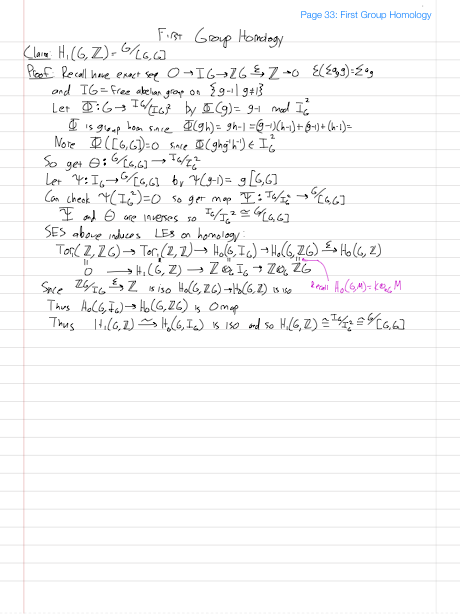 Page 33: First Group Homology
First Group Homology
Claim: H₁(G, ℤ) = G/[G,G]
Proof: Recall have exact seq 0 → IG → ℤG →^ε ℤ → 0 ε(Σa_g g) = Σa_g
and IG = Free abelian group on {g-1 | g≠1}
Let Φ: G → I_G/I_G² by Φ(g) = g-1 mod I_G²
Φ is group hom since Φ(gh) = gh-1 = (g-1)(h-1)+(g-1)+(h-1) =
Note Φ([G,G])=0 since Φ(ghg⁻¹h⁻¹) ∈ I_G²
So get Θ: G/[G,G] → I_G/I_G²
Let Ψ: I_G → G/[G,G] by Ψ(g-1) = g[G,G]
Can check Ψ(I_G²)=0 so get map Ψ̄: I_G/I_G² → G/[G,G]
Ψ̄ and Θ are inverses so I_G/I_G² ≅ G/[G,G]
SES above induces LES on homology:
Tor₁(ℤ, ℤG) → Tor₁(ℤ, ℤ) → H₀(G, I_G) → H₀(G, ℤG) →^ε H₀(G, ℤ)
0 → H₁(G, ℤ) → ℤ⊗_G I_G → ℤ⊗_G ℤG
Since ℤG/I_G →^ε ℤ is iso H₀(G, ℤG) → H₀(G, ℤ) is iso
Recall H₀(G,M) = k⊗_{kG} M
Thus H₀(G, I_G) → H₀(G, ℤG) is 0 map
Thus H₁(G, ℤ) →^~ H₀(G, I_G) is iso and so H₁(G, ℤ) ≅ I_G/I_G² ≅ G/[G,G]